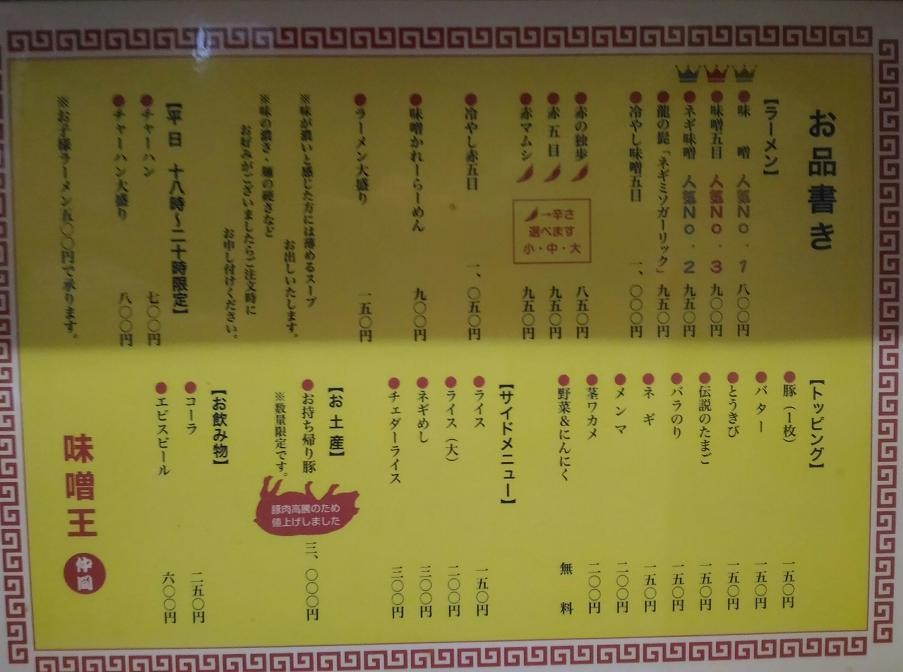 お品書き
【ラーメン】
●味　噌　人気No.1　八〇〇円
●味噌五目　人気No.3　九〇〇円
●ネギ味噌　人気No.2　九五〇円
●龍の髭「ネギミソガーリック」九五〇円
●冷やし味噌五目　一、〇〇〇円
●赤の独歩　八五〇円
●赤五目　九五〇円
●赤マムシ　九五〇円
→辛さ
選べます
小・中・大
●冷やし赤五目　一、〇五〇円
●味噌かれーらーめん　九〇〇円
●ラーメン大盛り　一五〇円
※味が濃いと感じた方には薄めるスープ
お出しいたします。
※味の濃さ・麺の硬さなど
お好みがございましたらご注文時に
お申し付けください。
【平日　十八時〜二十時限定】
●チャーハン　七〇〇円
●チャーハン大盛り　八〇〇円
※お子様ラーメン五〇〇円で承ります。
【トッピング】
●豚（1枚）　一五〇円
●バター　一五〇円
●とうきび　一五〇円
●伝説のたまご　一五〇円
●バラのり　一五〇円
●ネギ　一五〇円
●メンマ　二〇〇円
●茎ワカメ　二〇〇円
●野菜&にんにく　無　料
【サイドメニュー】
●ライス　一五〇円
●ライス（大）　二〇〇円
●ネギめし　三〇〇円
●チェダーライス　三〇〇円
【お土産】
●お持ち帰り豚　三、〇〇〇円
※数量限定です。
豚肉高騰のため
値上げしました
【お飲み物】
●コーラ　二五〇円
●エビスビール　六〇〇円
味噌王